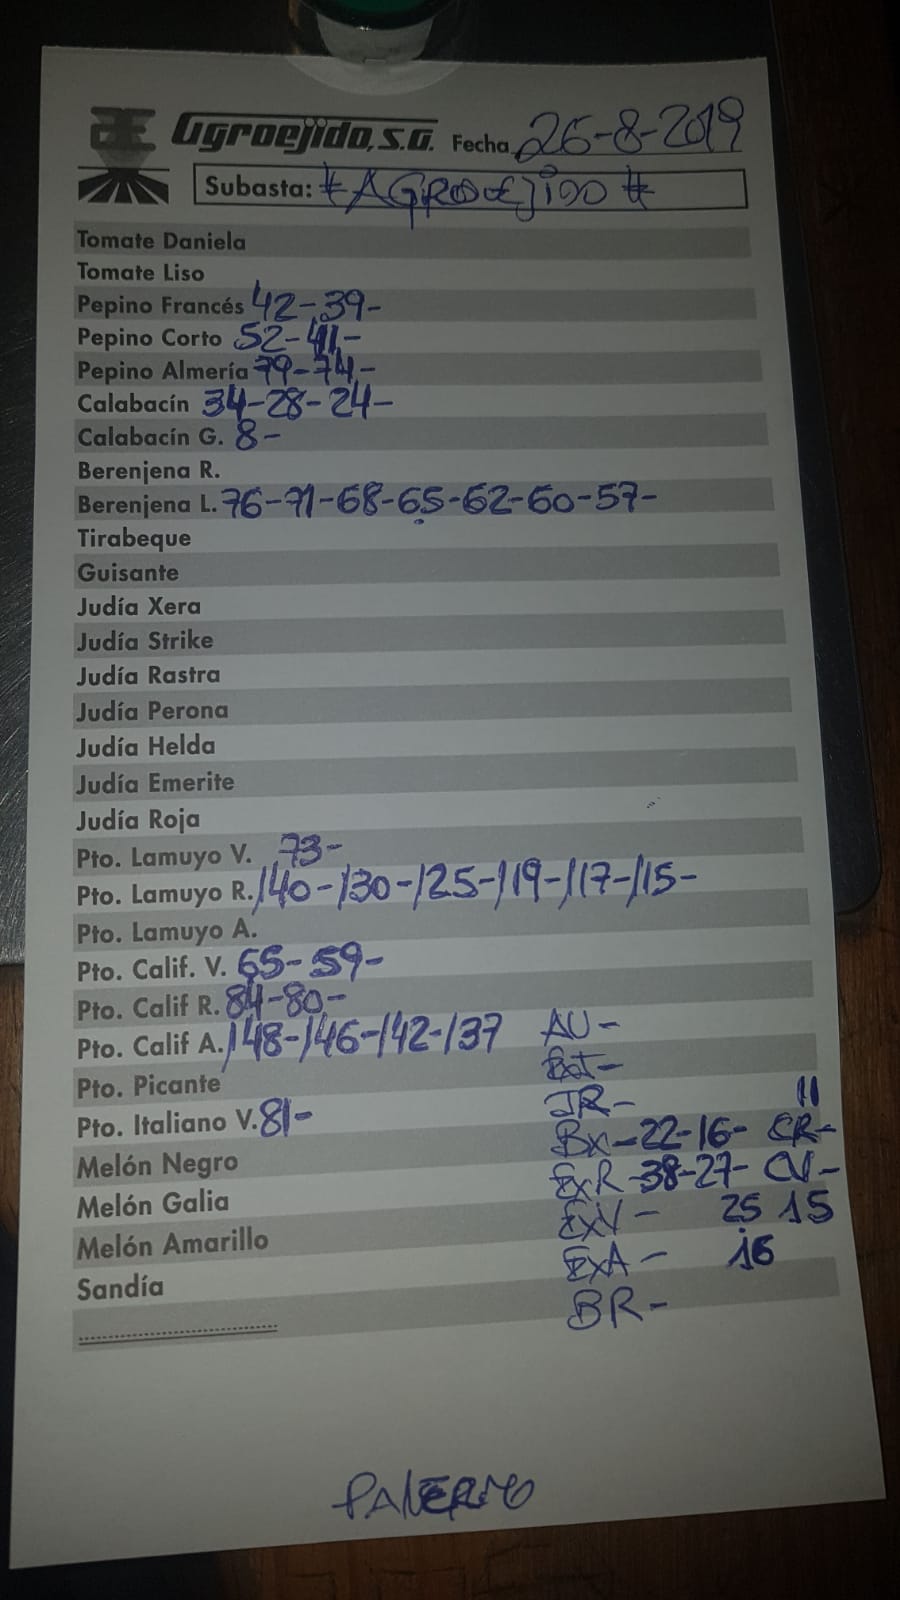 Agroejido, S.A. Fecha 26-8-2019
Subasta: #AGROEJIDO#
Tomate Daniela
Tomate Liso
Pepino Francés 42-39-
Pepino Corto 52-41-
Pepino Almería 79-74-
Calabacín 34-28-24-
Calabacín G. 8-
Berenjena R.
Berenjena L. 76-71-68-65-62-60-57-
Tirabeque
Guisante
Judía Xera
Judía Strike
Judía Rastra
Judía Perona
Judía Helda
Judía Emerite
Judía Roja
Pto. Lamuyo V. 73-
Pto. Lamuyo R. 140-130-125-119-117-115-
Pto. Lamuyo A.
Pto. Calif. V. 65-59-
Pto. Calif R. 84-80-
Pto. Calif A. 148-146-142-137 AU-
Pto. Picante
JR- 11
Pto. Italiano V. 81- Bx-22-16- CR-
Melón Negro ExR-38-27- CV-
Melón Galia ExV- 25 15
Melón Amarillo ExA- 16
Sandía BR-
PALERMO